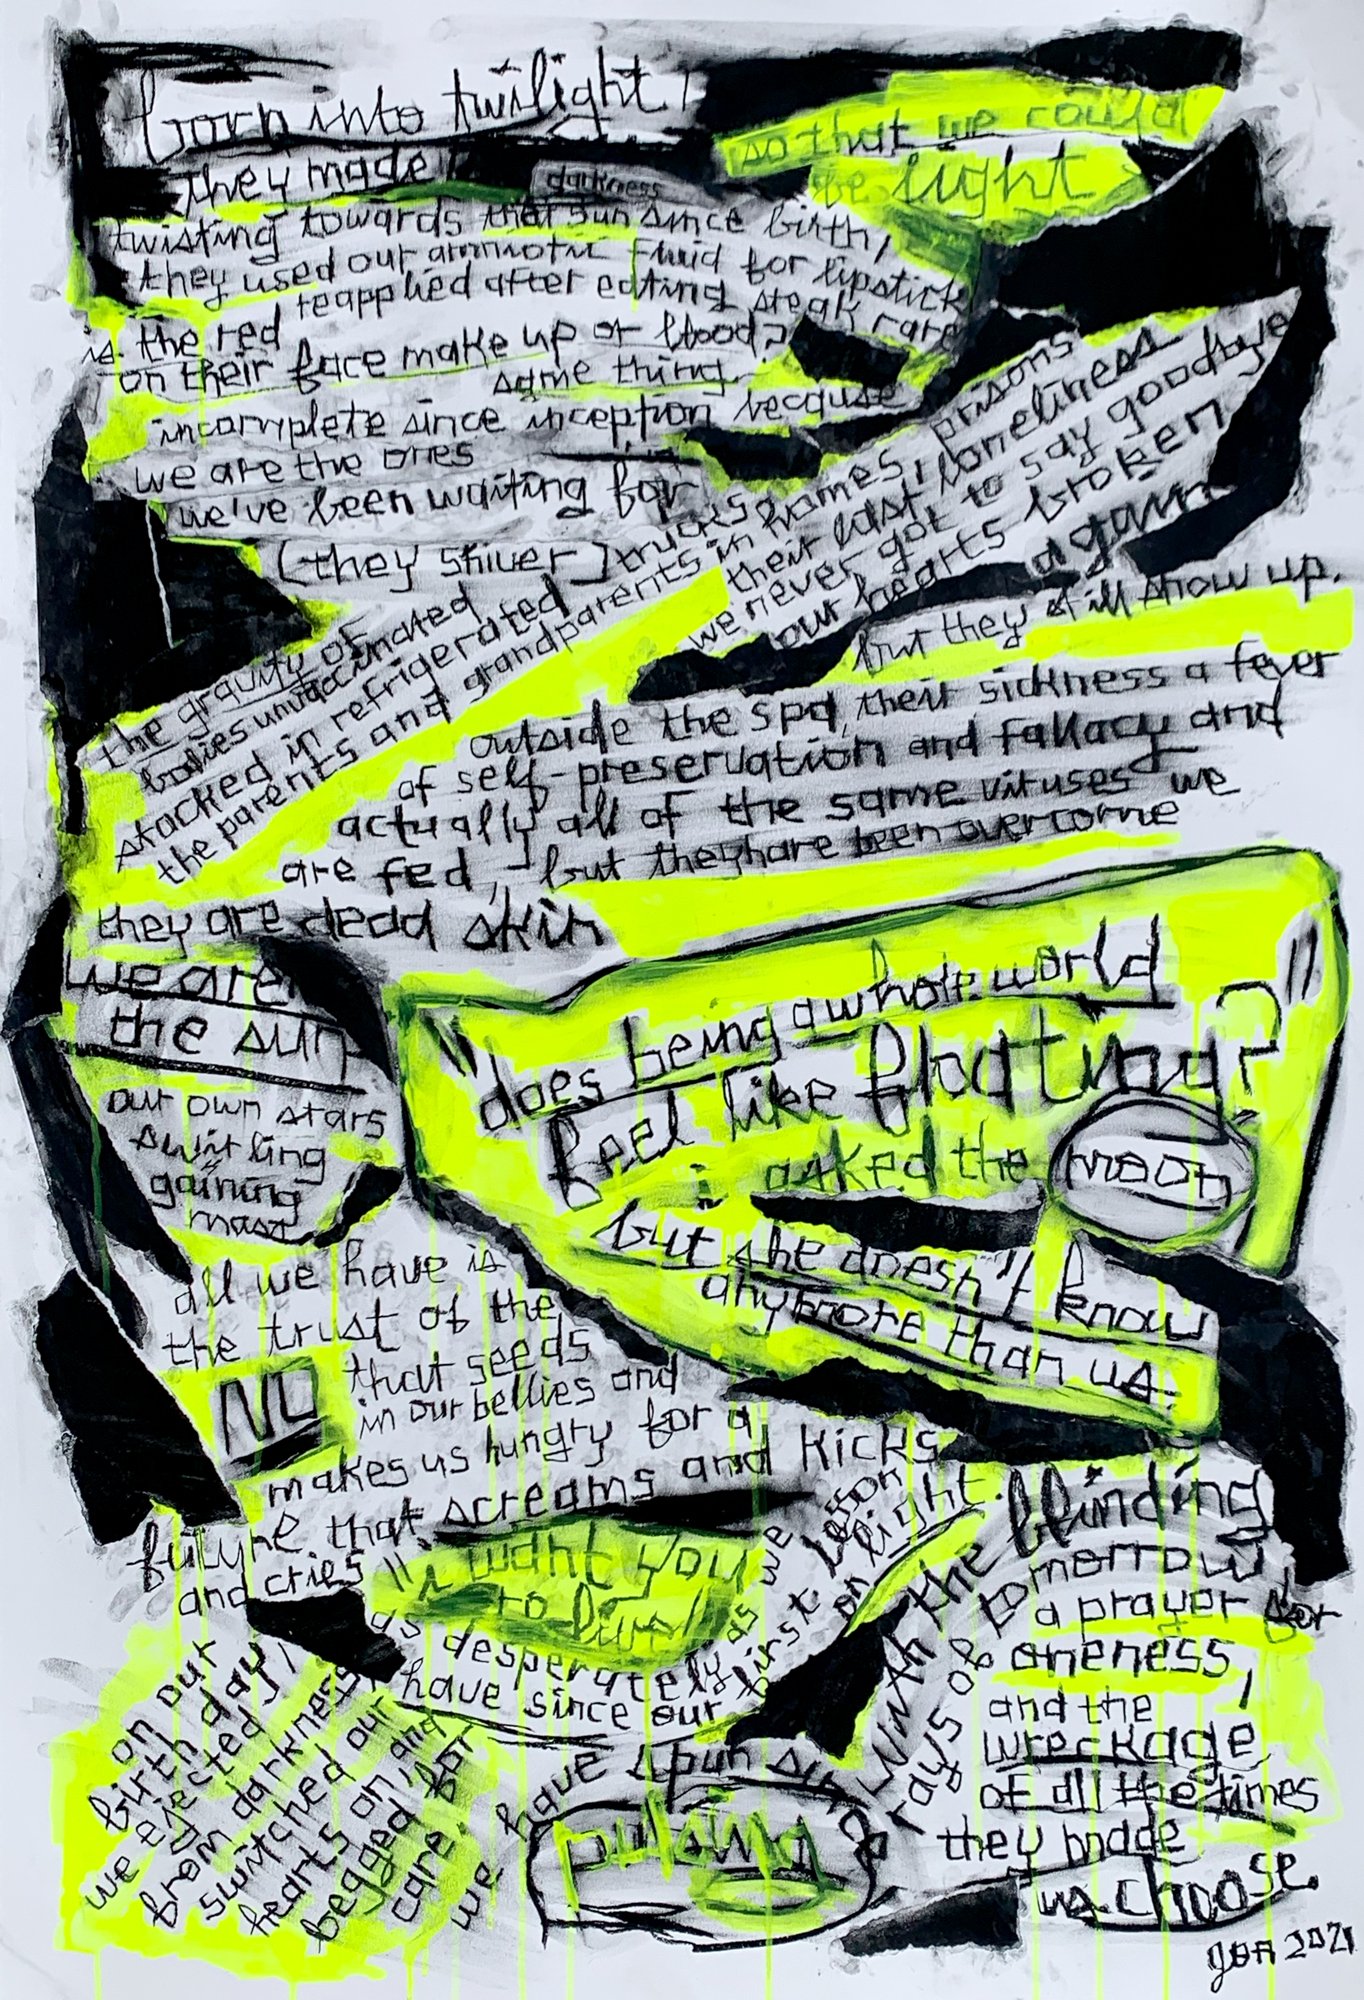 born into twilight,
they made darkness
so that we could
be light
twisting towards their sun since birth,
they used our amniotic fluid for lipstick
reapplied after eating steak rare
is the red
on their face make up or blood?
same thing
incomplete since inception because
we are the ones
we've been waiting for
(they shiver)
the gravity of
bodies unvaccinated
stacked in refrigerated trucks
the parents and grandparents in homes, prisons
their last loneliness
we never got to say goodbye
our hearts broken
again
but they still show up.
outside the spa, their sickness a fever
of self-preservation and fallacy and
actually all of the same viruses we
are fed, but they have been overcome
they are dead skin
we are
the sun
our own stars
swirling
gaining
mass
"does being a whole world
feel like floating?"
i asked the moon
but she doesn't know
anymore than us
all we have is
the trust of the
NO that seeds
in our bellies and
makes us hungry for a
future that screams and kicks
and cries "i want you
to live"
as desperately as we
have since our first lesson
on light.
on our
birth day,
we ejected
from darkness
switched our
hearts on, and
begged for
care
we have spun sin
pulsing
with the blinding
rays of tomorrow
a prayer for
oneness,
and the
wreckage
of all the times
they made
us choose.
2021